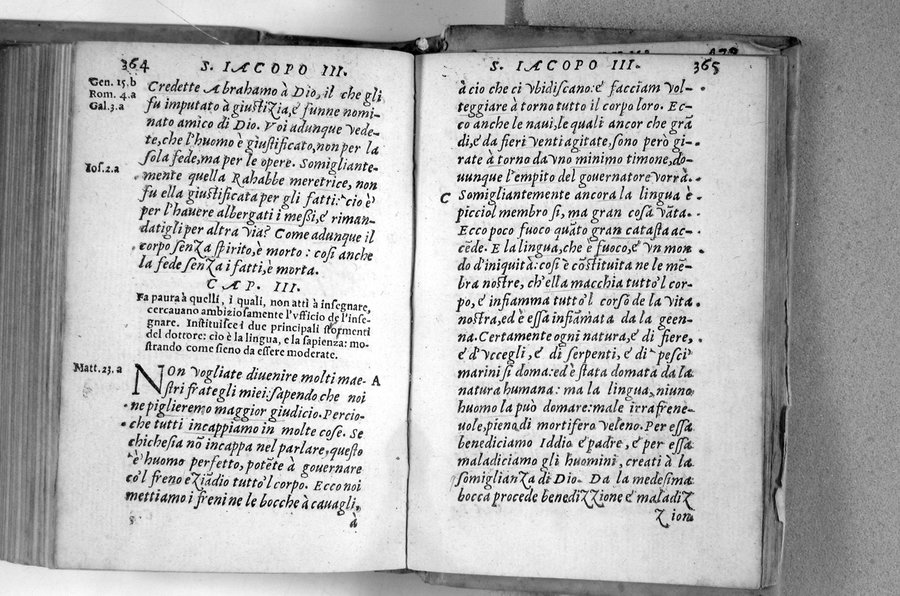 364
S. IACOPO III.
Gen. 15. b
Rom. 4. a
Gal. 3. a
Credette Abrahamo à Dio, il che gli
fu imputato à giustiZia, e funne nomi-
nato amico di Dio. Voi adunque vede-
te, che l'huomo è giustificato, non per la
sola fede, ma per le opere. Somigliante-
Ios. 2. a
mente quella Rahabbe meretrice, non
fu ella giustificata per gli fatti: cio è
per l'hauere albergati i messi, e riman-
datigli per altra via? Come adunque il
corpo senZa spirito, è morto: cosi anche
la fede senZa i fatti, è morta.
CAP. III.
Fa paura à quelli, i quali, non atti à insegnare,
cercauano ambiziosamente l'vfficio de l'inse-
gnare. Instituisce i due principali stormenti
del dottore: cio è la lingua, e la sapienza: mo-
strando come sieno da essere moderate.
Matt. 23. a
NOn vogliate diuenire molti mae- A
stri frategli miei: sapendo che noi
ne piglieremo maggior giudicio. Percio-
che tutti incappiamo in molte cose. Se
chichesia nõ incappa nel parlare, questo
è huomo perfetto, potẽte à gouernare
co'l freno eZiãdio tutto'l corpo. Ecco noi
mettiamo i freni ne le bocche à cauagli,
à
S. IACOPO III.
365
à cio che ci vbidiscano: e facciam vol-
teggiare à torno tutto il corpo loro. Ec-
co anche le naui, le quali ancor che grã
di, e da fieri venti agitate, sono però gi-
rate à torno da vno minimo timone, do-
uunque l'empito del gouernatore vorrà.
C Somigliantemente ancora la lingua è
picciol membro si, ma gran cosa vãta.
Ecco poco fuoco quãto gran catasta ac-
cẽde. E la lingua, che è fuoco, e vn mon
do d'iniquità: cosi è cõstituita ne le mẽ-
bra nostre, ch'ella macchia tutto'l cor-
po, e infiamma tutto'l corso de la vita
nostra, ed è essa infiãmata da la geen-
na. Certamente ogni natura, e di fiere,
e d'vccegli, e di serpenti, e di pesci
marini si doma: ed è stata domata da la
natura humana: ma la lingua, niuno
huomo la può domare: male irrafrene-
uole, pieno di mortifero veleno. Per essa
benediciamo Iddio e padre, e per essa
maladiciamo gli huomini, creati à la
somiglianZa di Dio. Da la medesima
bocca procede benediZZione e maladiZ
Zion